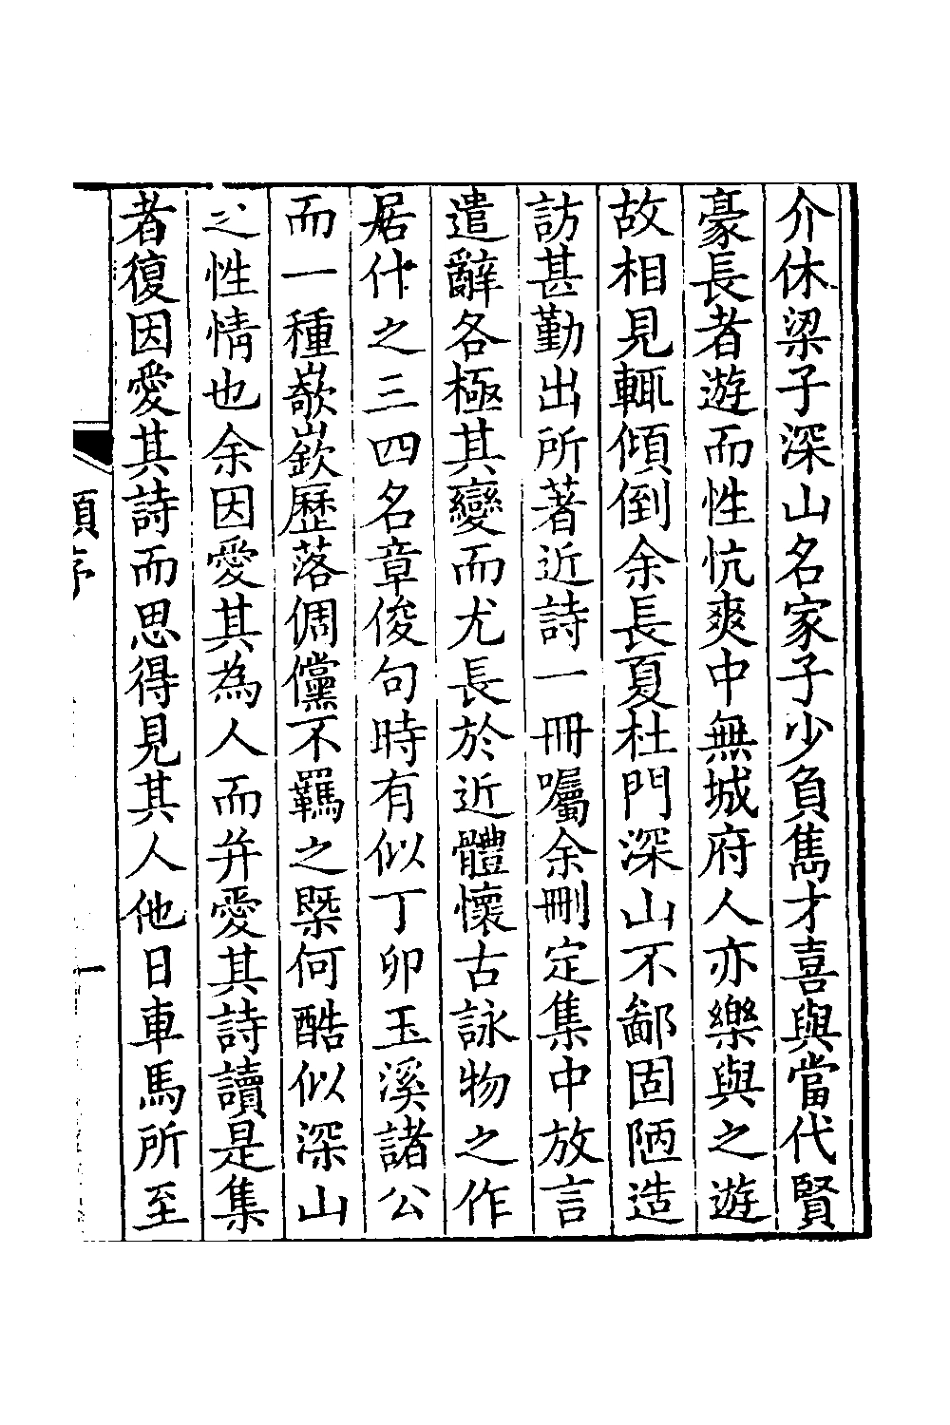 介休梁子深山名家子少負雋才喜與當代賢
豪長者遊而性伉爽中無城府人亦樂與之遊
故相見輒傾倒余長夏杜門深山不鄙固陋造
訪甚勤出所著近詩一冊囑余刪定集中放言
遣辭各極其變而尤長於近體懷古詠物之作
居什之三四名章俊句時有似丁卯玉溪諸公
而一種嶔崟歷落倜儻不羈之槩何酷似深山
之性情也余因愛其為人而并愛其詩讀是集
者復因愛其詩而思得見其人他日車馬所至
序
一